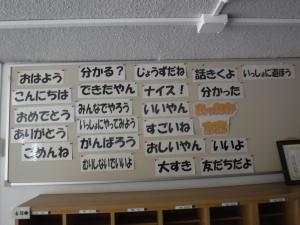 おはよう
こんにちは
おめでとう
ありがとう
ごめんね
分かる？
できたやん
みんなでやろう
いっしょにやってみよう
がんばろう
むりしないでいいよ
じょうずだね
ナイス！
いいやん
すごいね
おしいやん
大すき
話きくよ
分かった
あったか
言葉
いいよ
友だちだよ
いっしょに遊ぼう